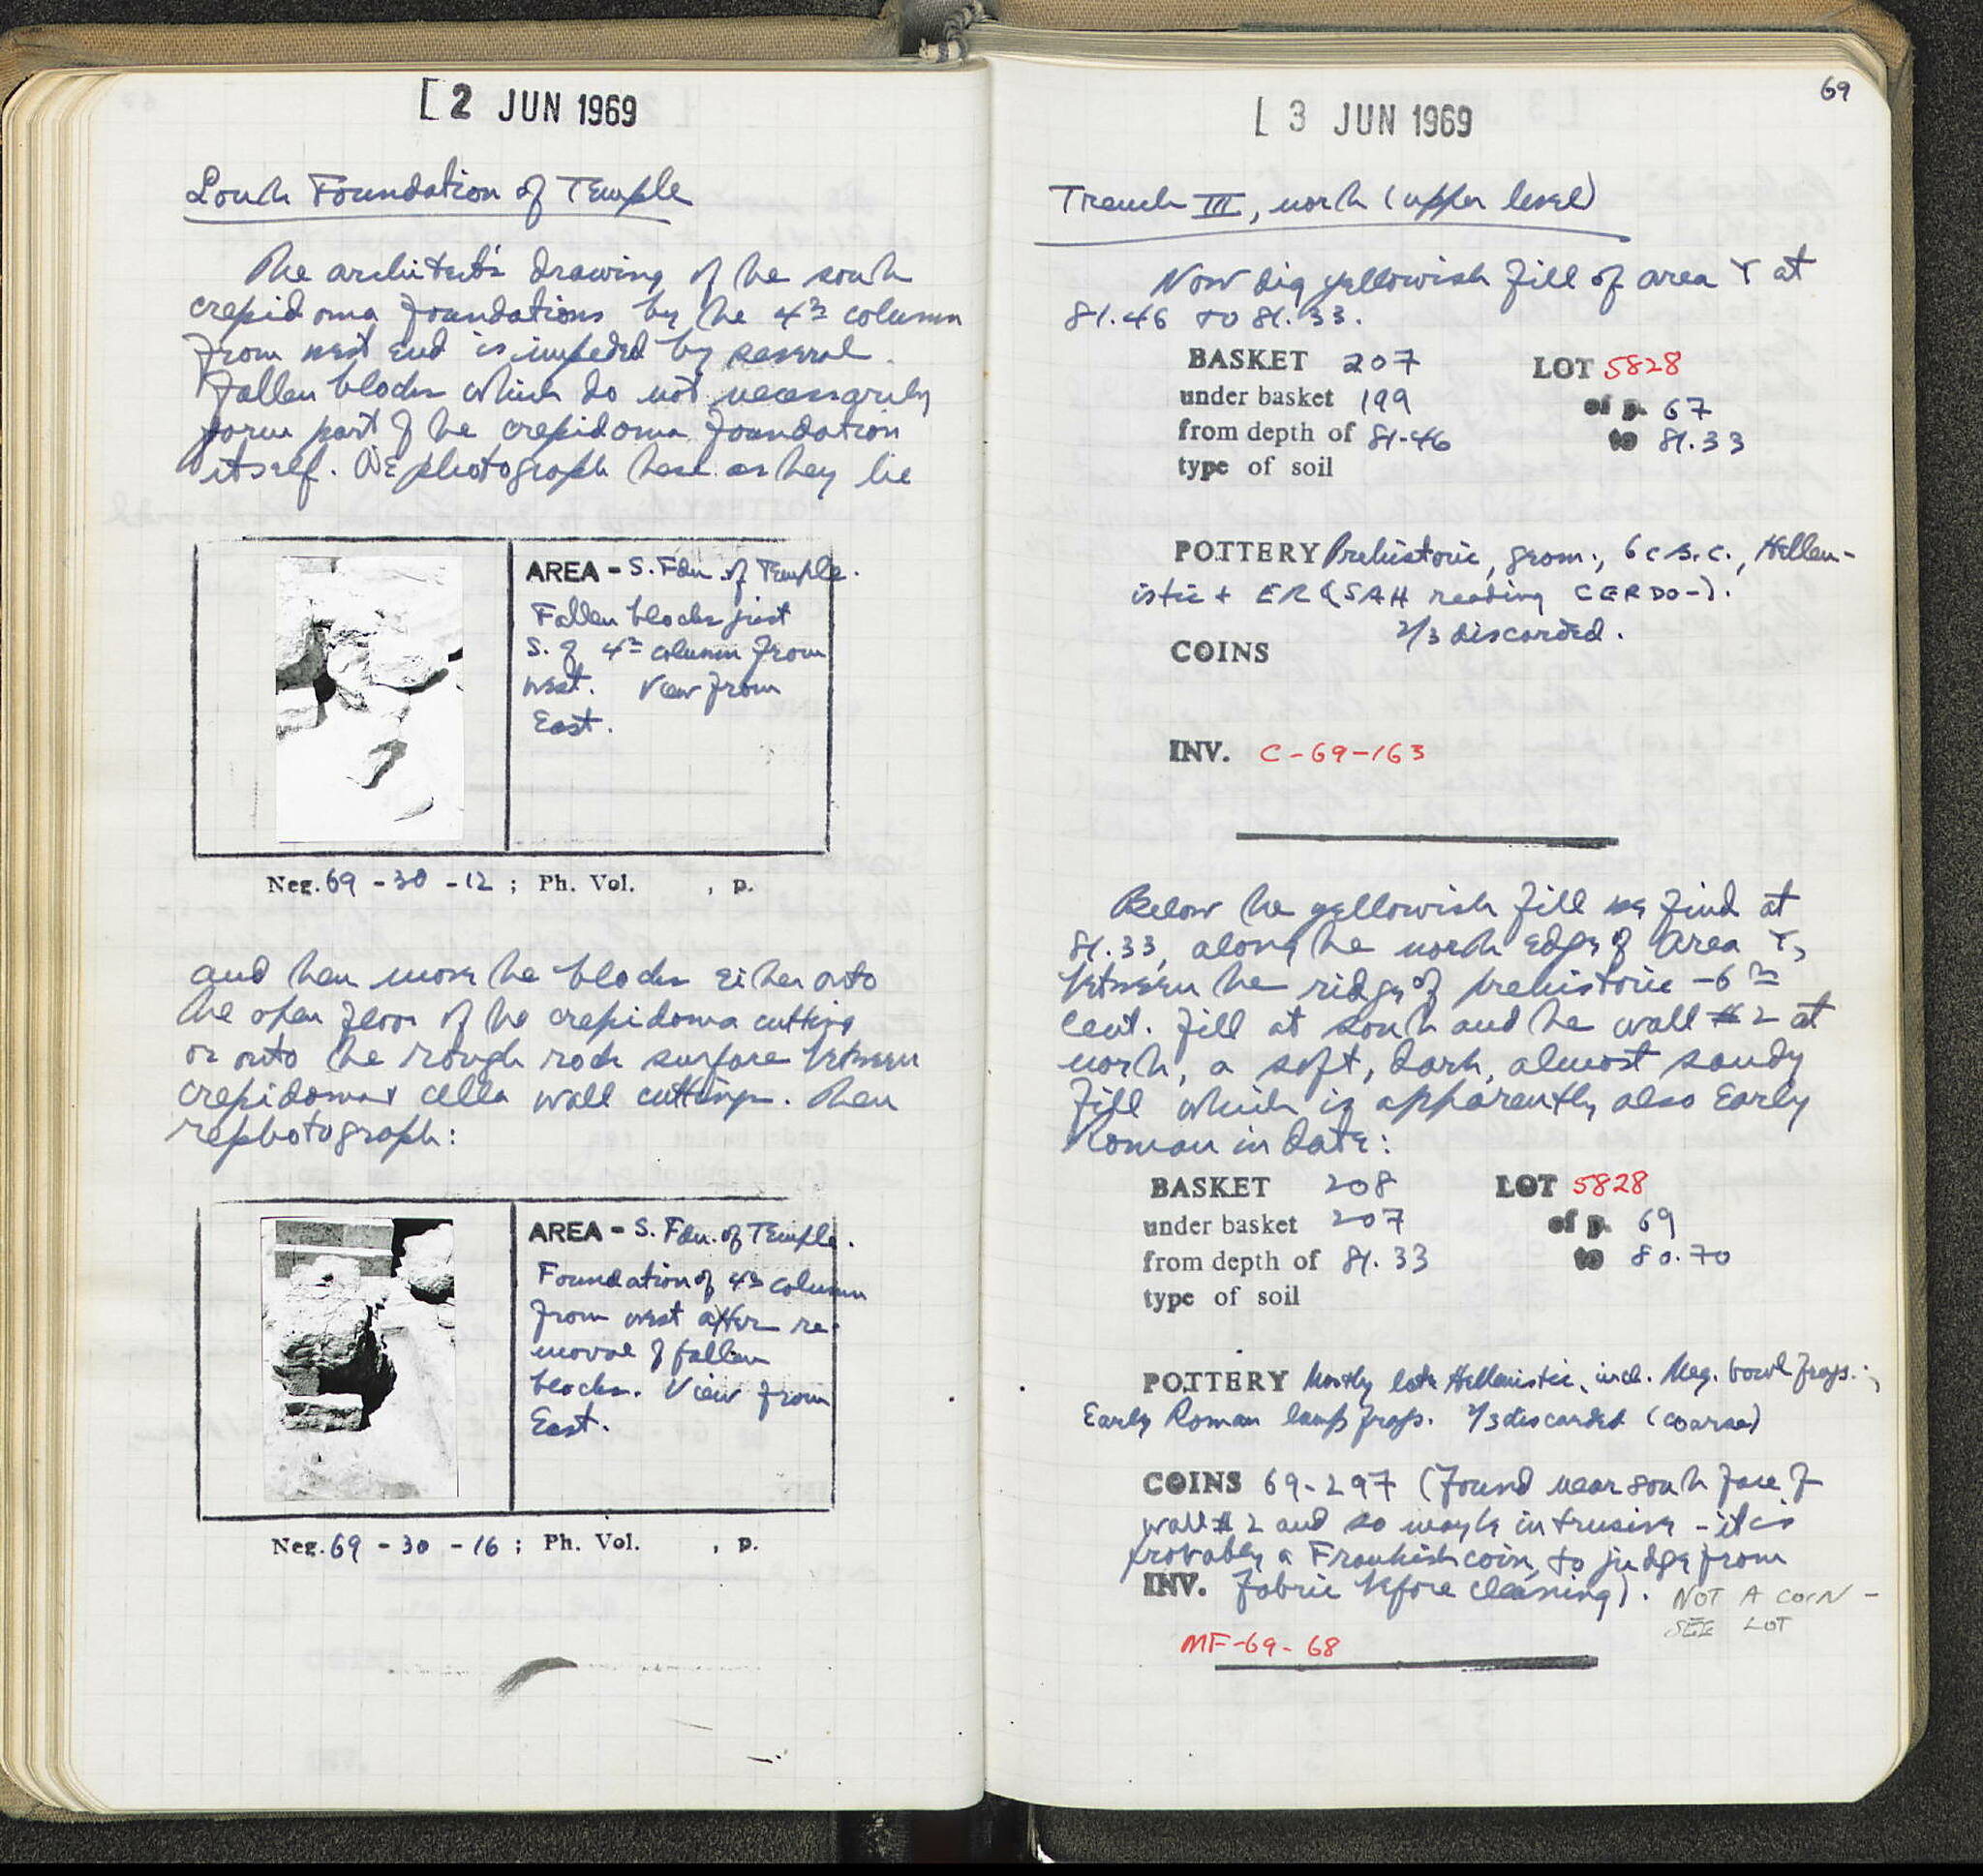 [2 JUN 1969
South Foundation of Temple
The architect's drawing of the south
crepidoma foundations by the 4th column
from west end is impeded by several
fallen blocks which do not necessarily
form part of the crepidoma foundation
itself. We photograph these as they lie
AREA - S. Fdn. of Temple.
Fallen blocks just
S. of 4th column from
west. View from
East.
Neg. 69 - 30 - 12 ; Ph. Vol. , p.
and then move the blocks either onto
the open floor of the crepidoma cutting
or onto the rough rock surface between
crepidoma & cella wall cuttings. Then
rephotograph:
AREA - S. Fdn. of Temple.
Foundation of 4th column
from west after re-
moval of fallen
blocks. View from
East.
Neg. 69 - 30 - 16 ; Ph. Vol. , p.
69
[3 JUN 1969
Trench III, north (upper level)
Now dig yellowish fill of area Y at
81.46 to 81.33.
BASKET 207 LOT 5828
under basket 199 of p. 67
from depth of 81.46 to 81.33
type of soil
POTTERY Prehistoric, geom., 6 c B.C., Hellen-
istic + ER (SAH reading CERDO-).
2/3 discarded.
COINS
INV. C-69-163
Below the yellowish fill we find at
81.33, along the north edge of area Y,
between the ridge of prehistoric - 6th
cent. fill at south and the wall #2 at
north, a soft, dark, almost sandy
fill which is apparently also Early
Roman in date:
BASKET 208 LOT 5828
under basket 207 of p. 69
from depth of 81.33 to 80.70
type of soil
POTTERY Mostly late Hellenistic, incl. Meg. bowl frags.;
Early Roman lamp frags. 2/3 discarded (coarse)
COINS 69-297 (Found near south face of
wall #2 and so maybe intrusive - it is
probably a Frankish coin, to judge from
INV. fabric before cleaning). NOT A COIN -
SEE LOT
MF-69-68